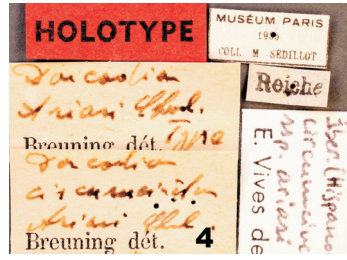 HOLOTYPE
MUSÉUM PARIS
COLL M SÉDILLOT
Reiche
Dorcadion
Ariasi Chvl.
Breuning dét. Type
Dorcadion
Breuning dét.
4
Iber. (Hispano
circumcinc
ssp. ariasi
E. Vives de